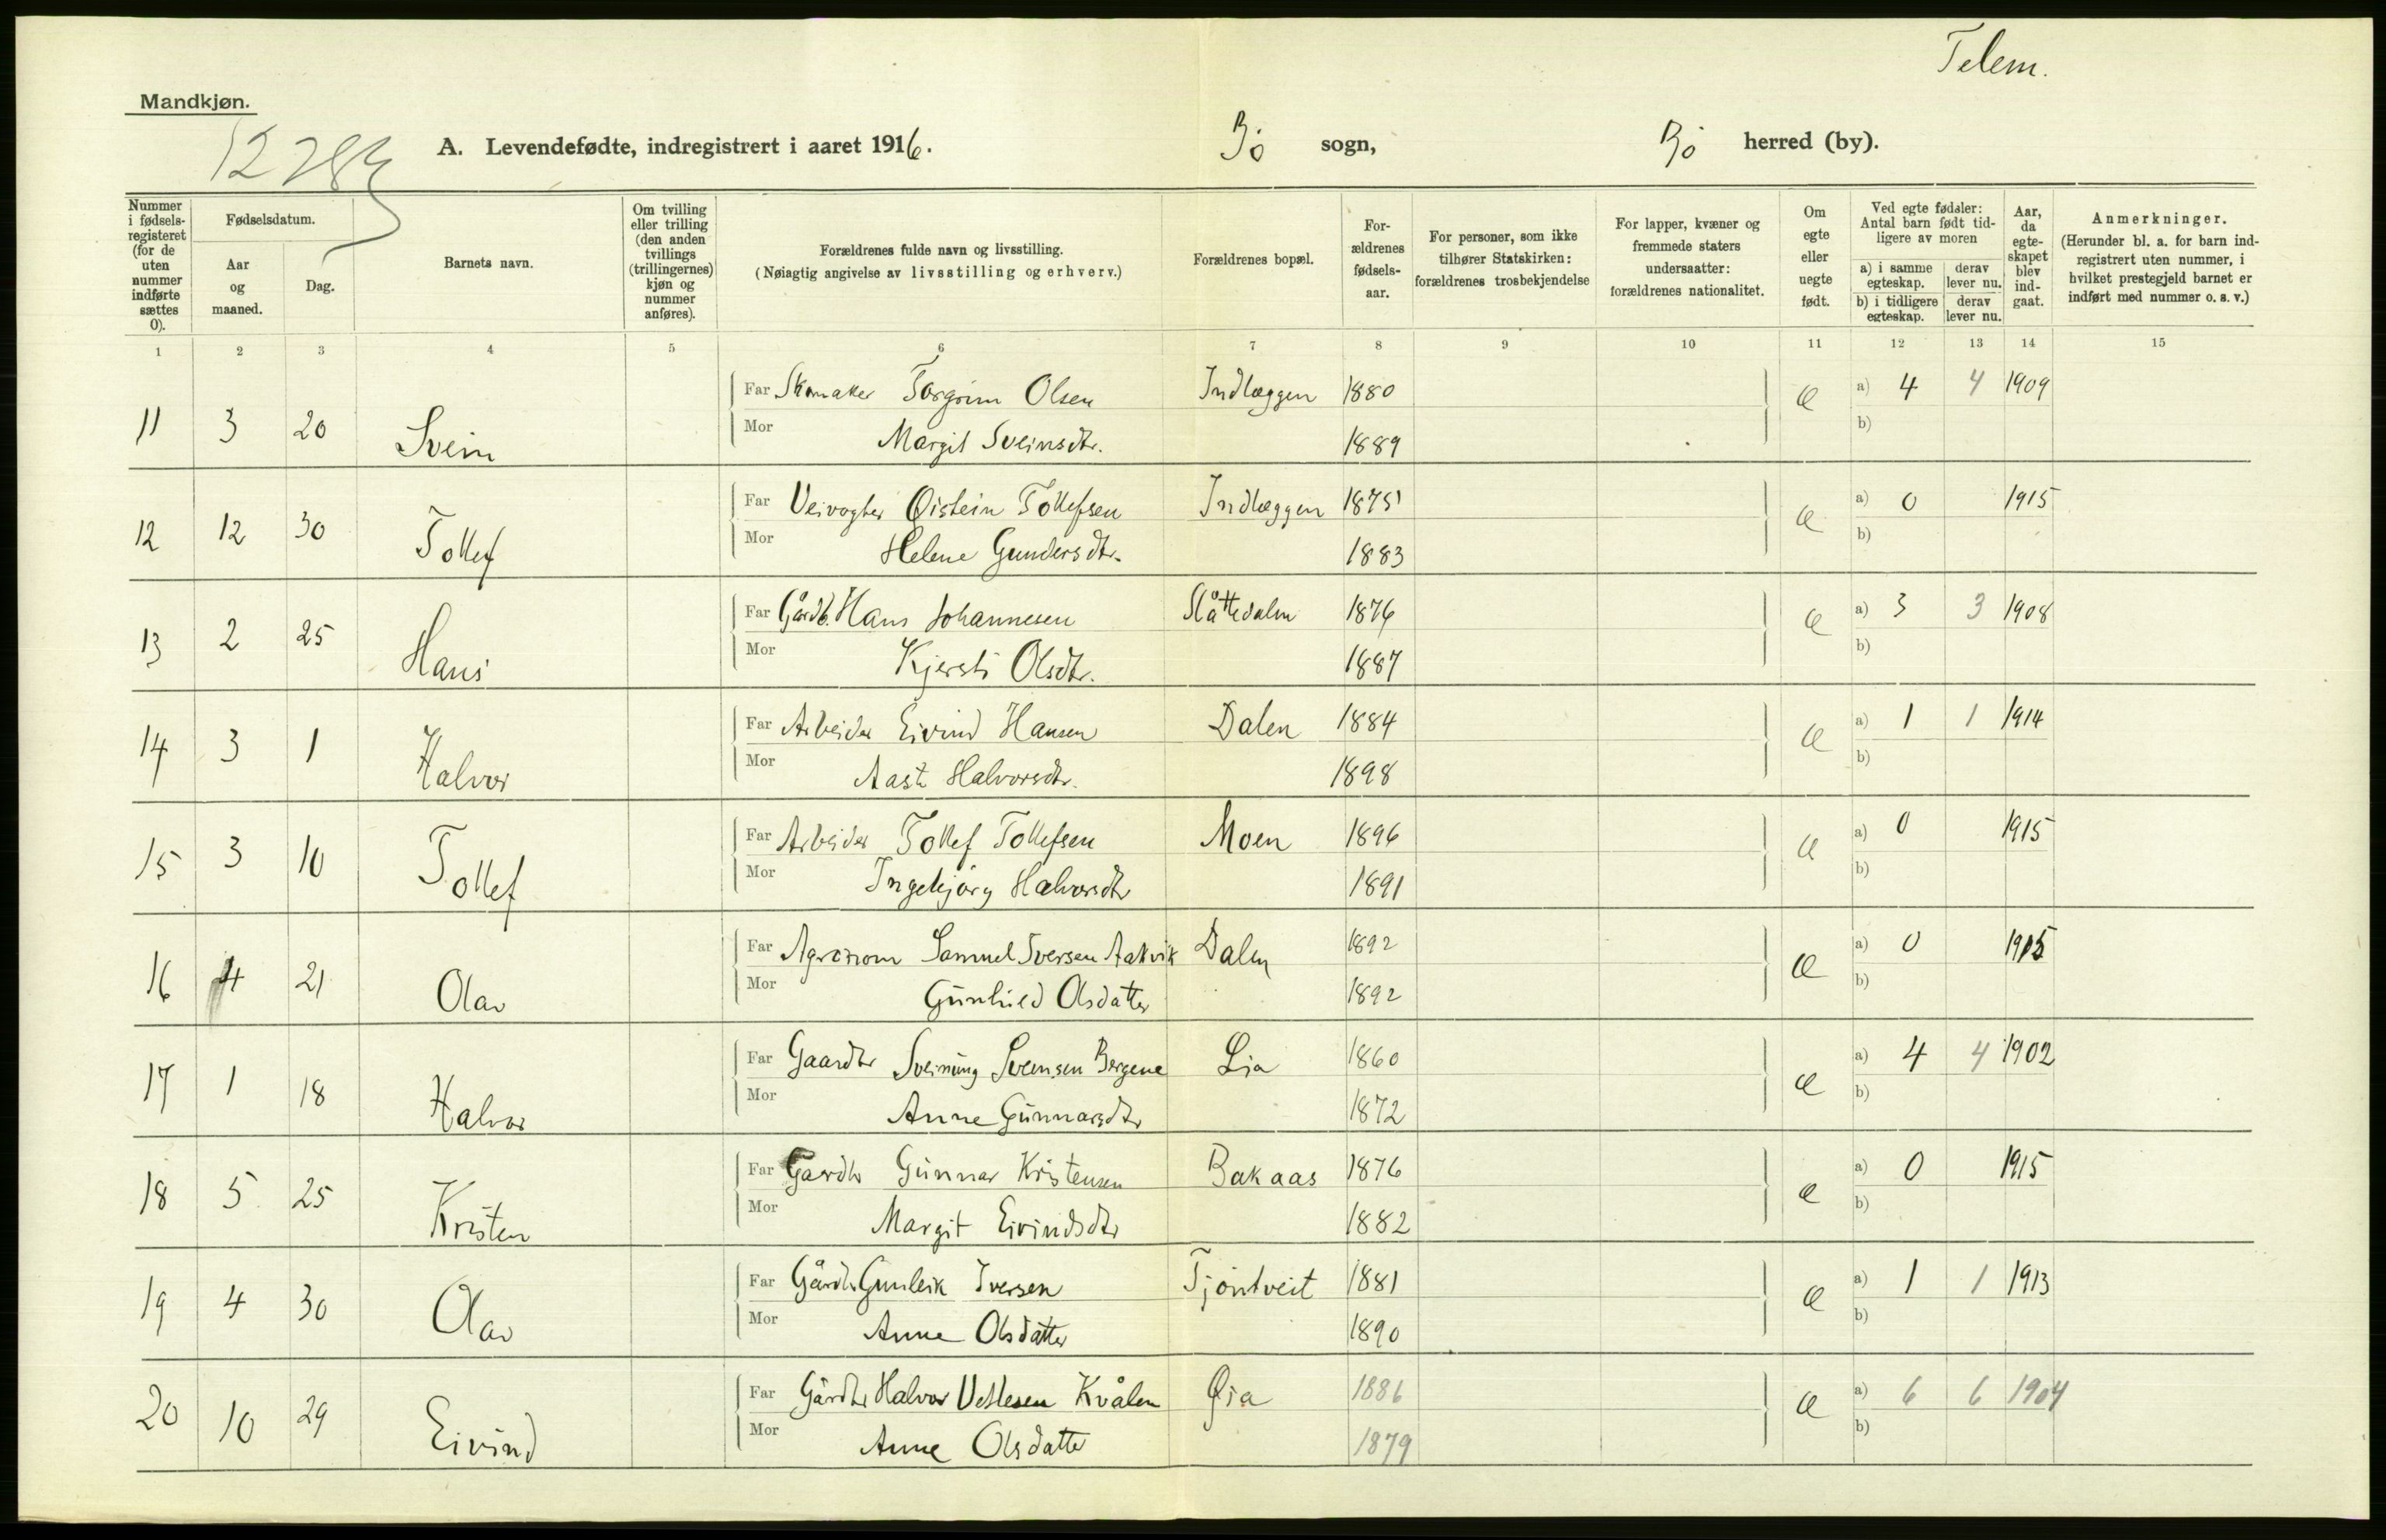 Telem.
Mandkjøn.
12283
A. Levendefødte, indregistrert i aaret 1916. Bö sogn, Bö herred (by).
Nummer i fødsels-registeret (for de uten nummer indførte sættes 0).
Fødselsdatum.
Aar og maaned.
Dag.
Barnets navn.
Om tvilling eller trilling (den anden tvillings (trillingernes) kjøn og nummer anføres).
Forældrenes fulde navn og livsstilling.
(Nøiagtig angivelse av livsstilling og erhverv.)
Forældrenes bopæl.
For-ældrenes fødsels-aar.
For personer, som ikke tilhører Statskirken: forældrenes trosbekjendelse
For lapper, kvæner og fremmede staters undersaatter: forældrenes nationalitet.
Om egte eller uegte født.
Ved egte fødsler: Antal barn født tid-ligere av moren
a) i samme egteskap. derav lever nu.
b) i tidligere egteskap. derav lever nu.
Aar, da egte-skapet blev ind-gaat.
Anmerkninger.
(Herunder bl. a. for barn ind-registrert uten nummer, i hvilket prestegjeld barnet er indført med nummer o. s. v.)
1 2 3 4 5 6 7 8 9 10 11 12 13 14 15
11 3 20 Svein Far Skomaker Torgrim Olsen Indlæggen 1880 Æ a) 4 4 1909
Mor Margit Sveinsdtr. 1889 b)
12 12 30 Tollef Far Veivogter Öistein Tollefsen Indlæggen 1875 Æ a) 0 1915
Mor Helene Gundersdtr. 1883 b)
13 2 25 Hans Far Gårdb. Hans Johannesen Slåttedalen 1876 Æ a) 3 3 1908
Mor Kjersti Olsdtr. 1887 b)
14 3 1 Halvor Far Arbeider Eivind Hansen Dalen 1884 Æ a) 1 1 1914
Mor Aaste Halvorsdtr. 1898 b)
15 3 10 Tollef Far Arbeider Tollef Tollefsen Moen 1896 Æ a) 0 1915
Mor Ingebjörg Halvorsdtr 1891 b)
16 4 21 Olav Far Agronom Samuel Iversen Aakvik Dalen 1892 Æ a) 0 1915
Mor Gunhild Olsdatter 1892 b)
17 1 18 Halvor Far Gaardbr Sveinung Svensen Bergene Lia 1860 Æ a) 4 4 1902
Mor Anne Gunnarsdtr 1872 b)
18 5 25 Kristen Far Gardbr Gunnar Kristensen Bakaas 1876 Æ a) 0 1915
Mor Margit Eivindsdtr 1882 b)
19 4 30 Olav Far Gårdbr Gunleik Iversen Tjöntveit 1881 Æ a) 1 1 1913
Mor Anne Olsdatter 1890 b)
20 10 29 Eivind Far Gårdbr Halvor Vetlesen Kvålen Øia 1886 Æ a) 6 6 1904
Mor Anne Olsdatter 1879 b)